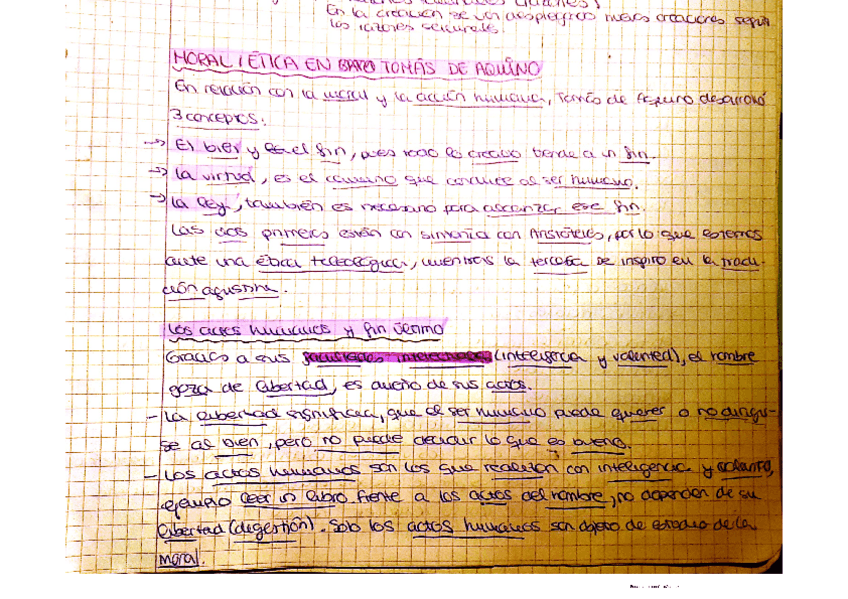 En la creación se van desplegando nuevas creaciones según
las razones seminales.
MORAL Y ÉTICA EN TOMÁS DE AQUINO
En relación con la moral y la acción humana, Tomás de Aquino desarrolló
3 conceptos:
→ El bien y es el fin, pues todo lo creado tiende a un fin.
→ La virtud, es el camino que conduce al ser humano.
→ la ley, también es necesario para alcanzar ese fin.
Las dos primeras están con sintonía con Aristóteles, por lo que estamos
ante una ética teleológica, mientras la tercera se inspiró en la tradi-
ción agustina.
Los actos humanos y fin último
Gracias a sus facultades intelectuales (inteligencia y voluntad), el hombre
goza de libertad, es dueño de sus actos.
- La libertad significa, que el ser humano puede querer o no dirigir-
se al bien, pero no puede decidir lo que es bueno.
- Los actos humanos son los que realizan con inteligencia y voluntad,
ejemplo leer un libro frente a los actos del hombre, no dependen de su
libertad (digestión). Solo los actos humanos son objeto de estudio de la
moral.